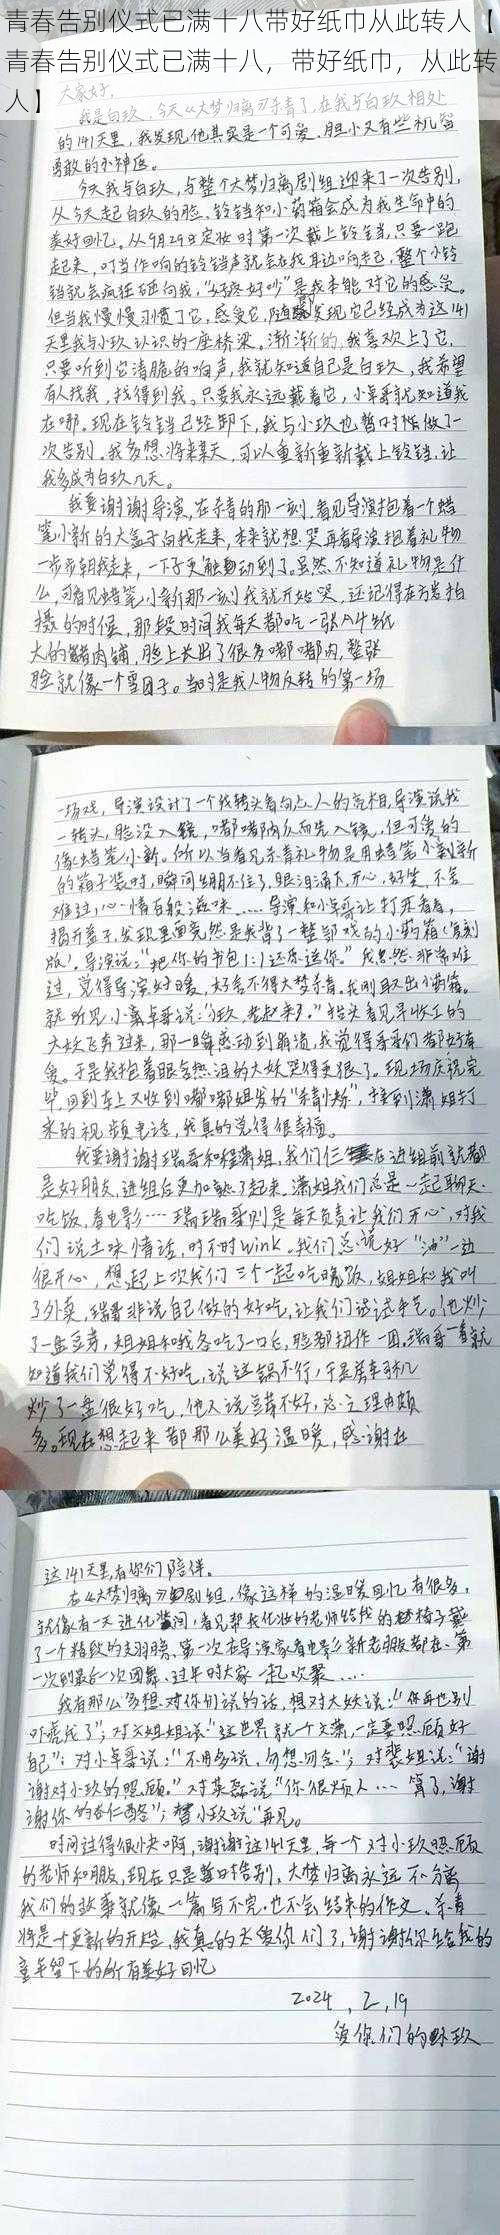 青春告别仪式已满十八带好纸巾从此转人【
青春告别仪式已满十八，带好纸巾，从此转
人】
大家好，
我是白玖，今天《大梦归离》杀青了，在我与白玖相处
的141天里，我发现他其实是一个可爱、胆小又有些机智
勇敢的小神医。
今天我与白玖，与整个大梦归离剧组迎来了一次告别，
从今天起白玖的脸、铃铛和小药箱会成为我生命中的
美好回忆。从9月29日定妆时第一次戴上铃铛，只要一跑
起来，叮当作响的铃铛声就会在我耳边响起，整个小铃
铛就会疯狂砸向我，“好疼好吵”是我本能对它的感受。
但当我慢慢习惯了它，感受它，随发现它已经成为这141
天里我与小玖认识的一座桥梁。渐渐的，我喜欢上了它，
只要听到它清脆的响声，我就知道自己是白玖，我希望
有人找我，找得到我。只要我永远戴着它，小卓哥就知道我
在哪。现在铃铛已经卸下，我与小玖也暂时做了一
次告别。我多想将来某天，可以重新重新戴上铃铛，让
我多成为白玖几天。
我要谢谢导演，在杀青的那一刻，看见导演抱着一个蜡
笔小新的大盒子向我走来，本来就想哭再看导演抱着礼物
一步步朝我走来，一下子更触动到了。虽然不知道礼物是什
么，可看见蜡笔小新那一刻我就开始哭，还记得在方岩拍
摄的时候，那段时间我每天都吃一张A4纸
大的猪肉铺，脸上长出了很多嘟嘟肉，整张
脸就像一个雪团子。当时是我人物反转的第一场
一场戏，导演设计了一个我转头看向众人的亮相，导演说我
一转头，脸没入镜，嘟嘟肉反而先入镜，但可爱的
像蜡笔小新。所以当看见杀青礼物是用蜡笔小新
的箱子装时，瞬间绷不住了，眼泪涌下，开心，好笑，不舍
难过，心情百般滋味……导演和小卓哥让打开看看，
揭开盖子，发现里面竟然是我背了一整部戏的小药箱（复刻
版），导演说：“把你的书包1:1还原送你。”我忽然非常难
过，觉得导演好暖，好舍不得大梦杀青。我刚取出小药箱。
就听见小卓哥说：“小玖，抬起来。”抬头看见早收工的
大妖飞奔过来，那一瞬感动到崩溃，我觉得哥哥们都好有
爱。于是我抱着眼含热泪的大妖哭得更狠了。现场庆祝完
毕，回到车上又收到嘟嘟姐发的“杀青快”，接到潇姐打
来的视频电话，我真的觉得很幸福。
我要谢谢瑞哥和程潇姐，我们仨在进组前就都
是好朋友，进组后更加熟了起来。潇姐我们总是一起聊天、
吃饭、看电影……瑞瑞哥则是每天负责让我们开心，对我
们说土味情话，时不时wink。我们总说好“油”一边
很开心，想起上次我们三个一起吃晚饭，姐姐和我叫
了外卖，瑞哥非说自己做的好吃，让我们试试手艺。他炒
了一盘豆芽，姐姐和我各吃了一口后，脸都扭作一团。瑞哥一看就
知道我们觉得不好吃，说这锅不行，于是
炒了一盘很好吃，他又说豆芽不好，总之理由颇
多。现在想起来都那么美好温暖，感谢在
这141天里，有你们陪伴。
在《大梦归离》剧组，像这样的温暖回忆有很多，
就像有一天进化妆间，看见帮我化妆的老师给我的椅子戴
了一个粉段的支羽膀、第一次在导演家看电影新老朋都在、第
一次到最后一次围舞、过年时大家一起欢聚……
我有那么多想对你们说的话，想对大妖说：“你再也别
吓唬我了”；对文姐姐说“这世界就一个文潇，一定要照顾好
自己”；对小卓哥说：“不用多说，勿想勿念。”；对裴姐说：“谢
谢对小玖的照顾。”对英磊说“你很烦人…算了，谢
谢你的杏仁酪”；替小玖说“再见。
时间过得很快啊，谢谢这141天里，每一个对小玖照顾
的老师和朋友，现在只是暂时告别，大梦归离永远不分离
我们的故事就像一篇写不完，也不会结束的作文。杀青
将是一个更新的开始，我真的太爱你们了，谢谢你们给我的
童年留下的所有美好回忆
2024，2，19
爱你们的小玖